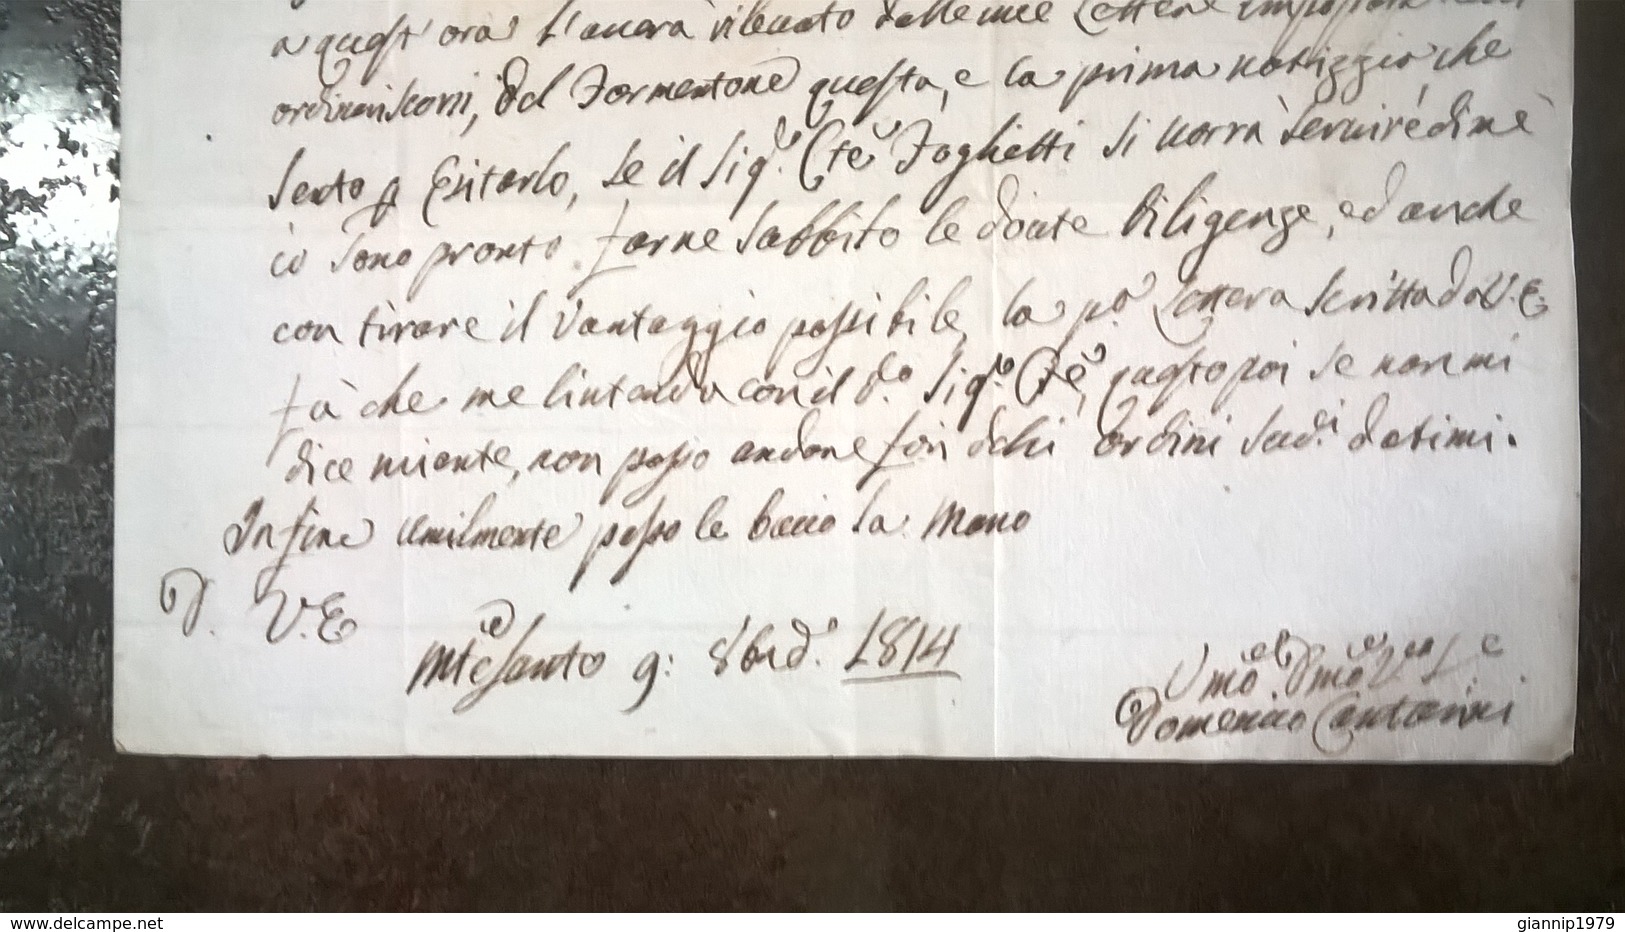 a quest' ora l'auerà riceuuto dalle mie Lettere
del Formentone questa, e la prima notizzia, che
Sento p Esitarlo, se il Sigr. Cte Foglietti si uorrà Seruire di me
io Sono pronto farne Subbito le douute Diligenze, ed anche
con tirare il Vantaggio possibile, la pa. Lettera Scritta da V.E.
fà che me l'intenda con il do. Sigr. Cte, questo poi se non mi
dice niente, non posso andare fori delli ordini
In fine umilmente posso le bacio la Mano
D. V.E
Mte Santo 9: 8bre 1814
Domenico Cantarini
delcampe.net
giannip1979